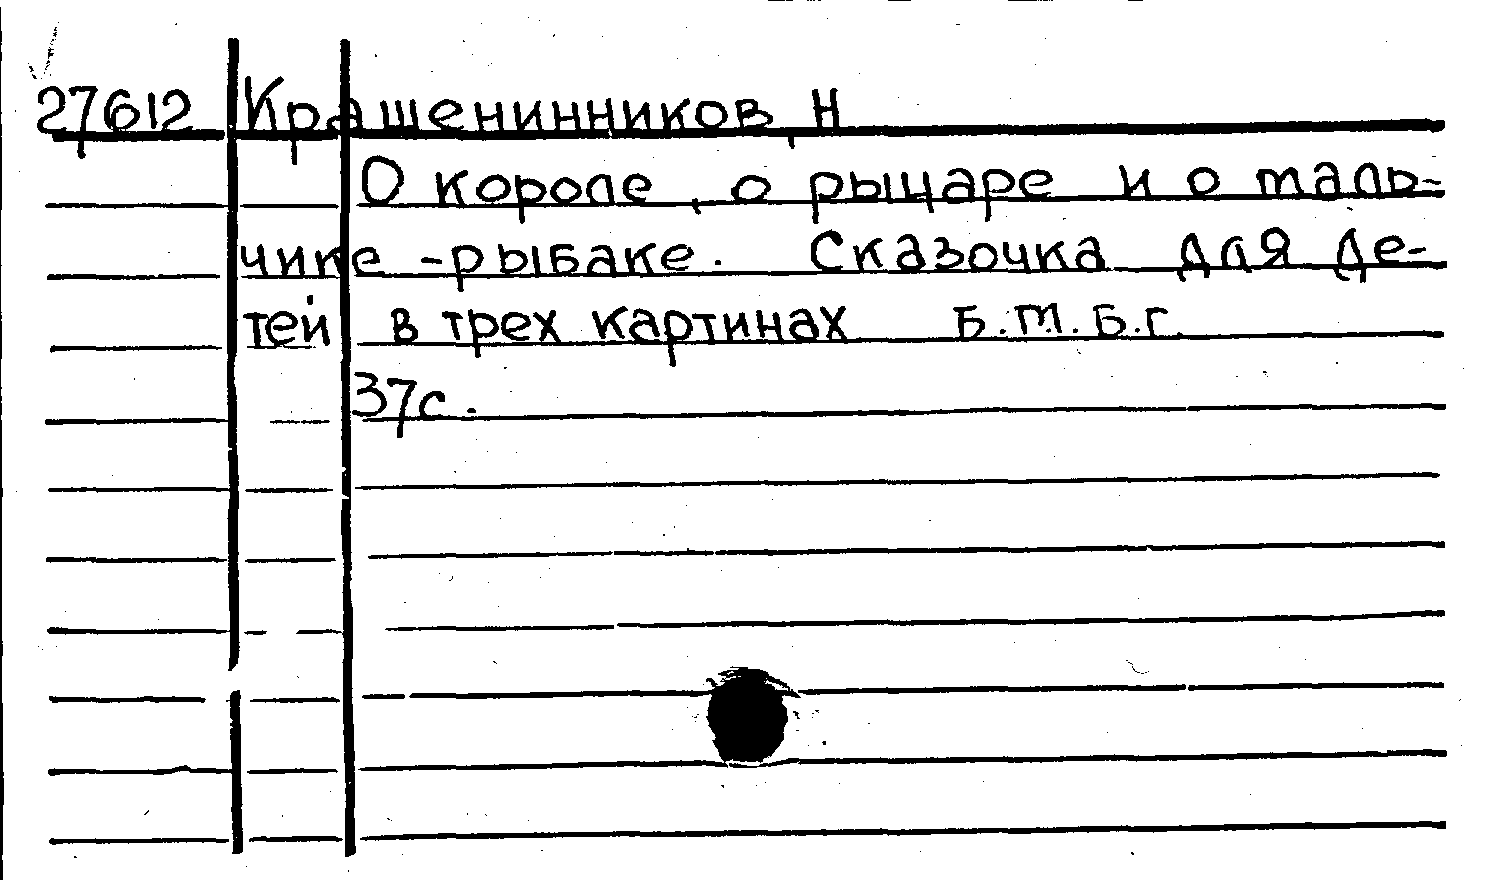 27612 Крашенинников, Н
О короле, о рыцаре и о маль-
чике-рыбаке. Сказочка для де-
тей в трех картинах Б.м. Б.г.
37с.